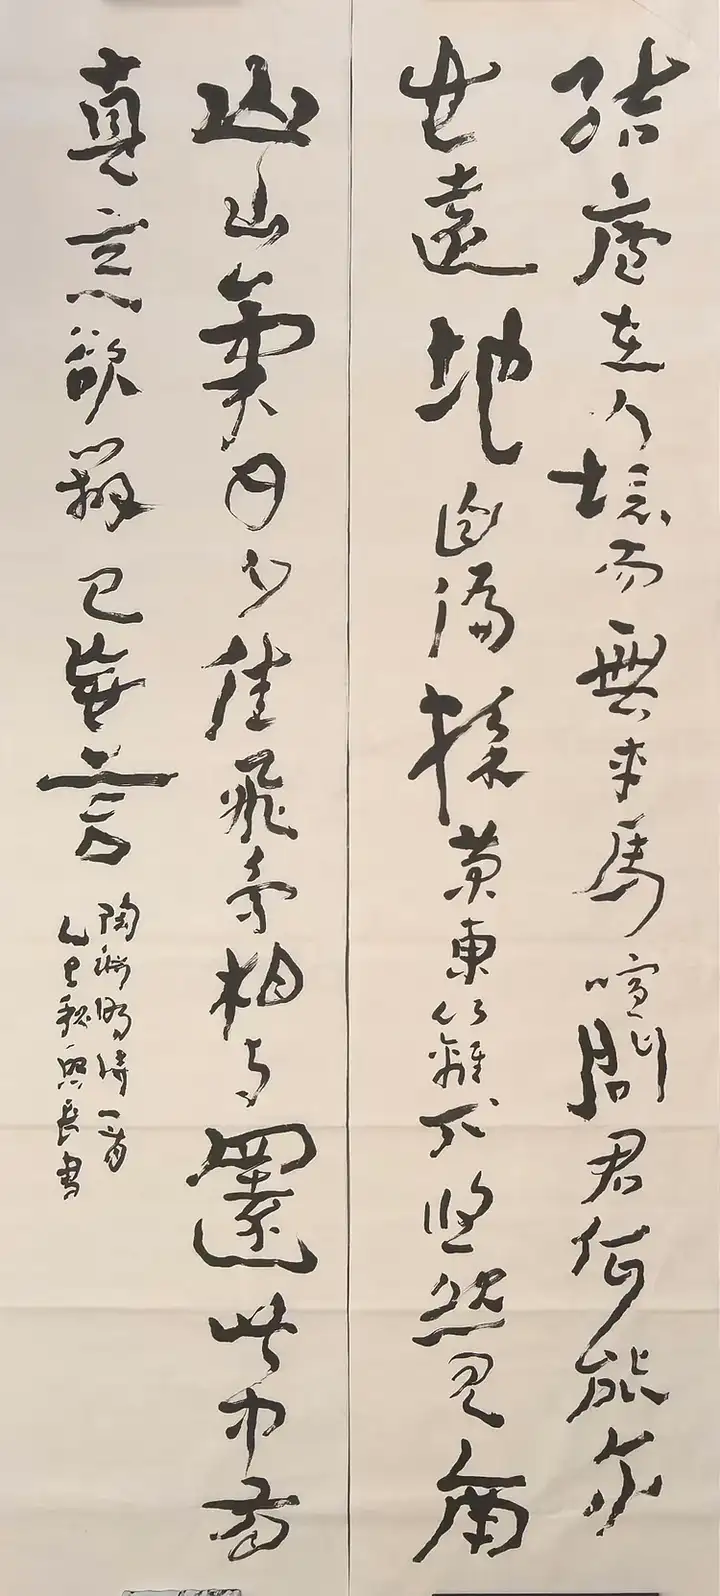 結廬在人境而無車馬喧問君何能尔
心遠地自偏採菊東籬下悠然見南
山山氣日夕佳飛鳥相与還此中有
真意欲辨已忘言
陶渊明詩一首
乙巳秋興長書